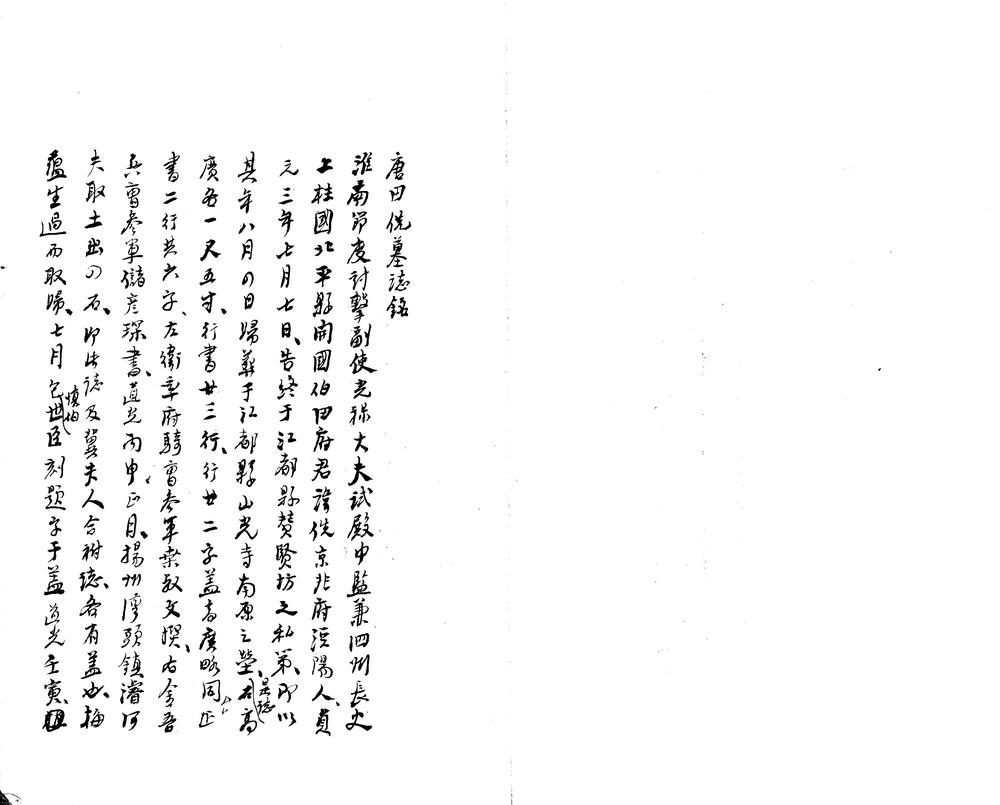 唐田侁墓誌銘
淮南節度討擊副使光祿大夫試殿中監兼泗州長史
上柱國北平縣開國伯田府君諱侁京兆府涇陽人、貞
元三年七月七日、告終于江都縣贊賢坊之私第、即以
其年八月四日歸葬于江都縣山光寺南原之塋、是誌石高
廣各一尺五寸、行書廿三行、行廿二字蓋高廣略同正
書二行共六字、左衛率府騎曹參軍桑叔文撰、右金吾
兵曹參軍儲彥琛書、道光丙申正月、揚州灣頭鎮濬河
夫取土出四石、即此誌及冀夫人合祔誌、各有蓋也、梅
蘊生過而取歸、七月包慎伯世臣刻題字于蓋道光壬寅、